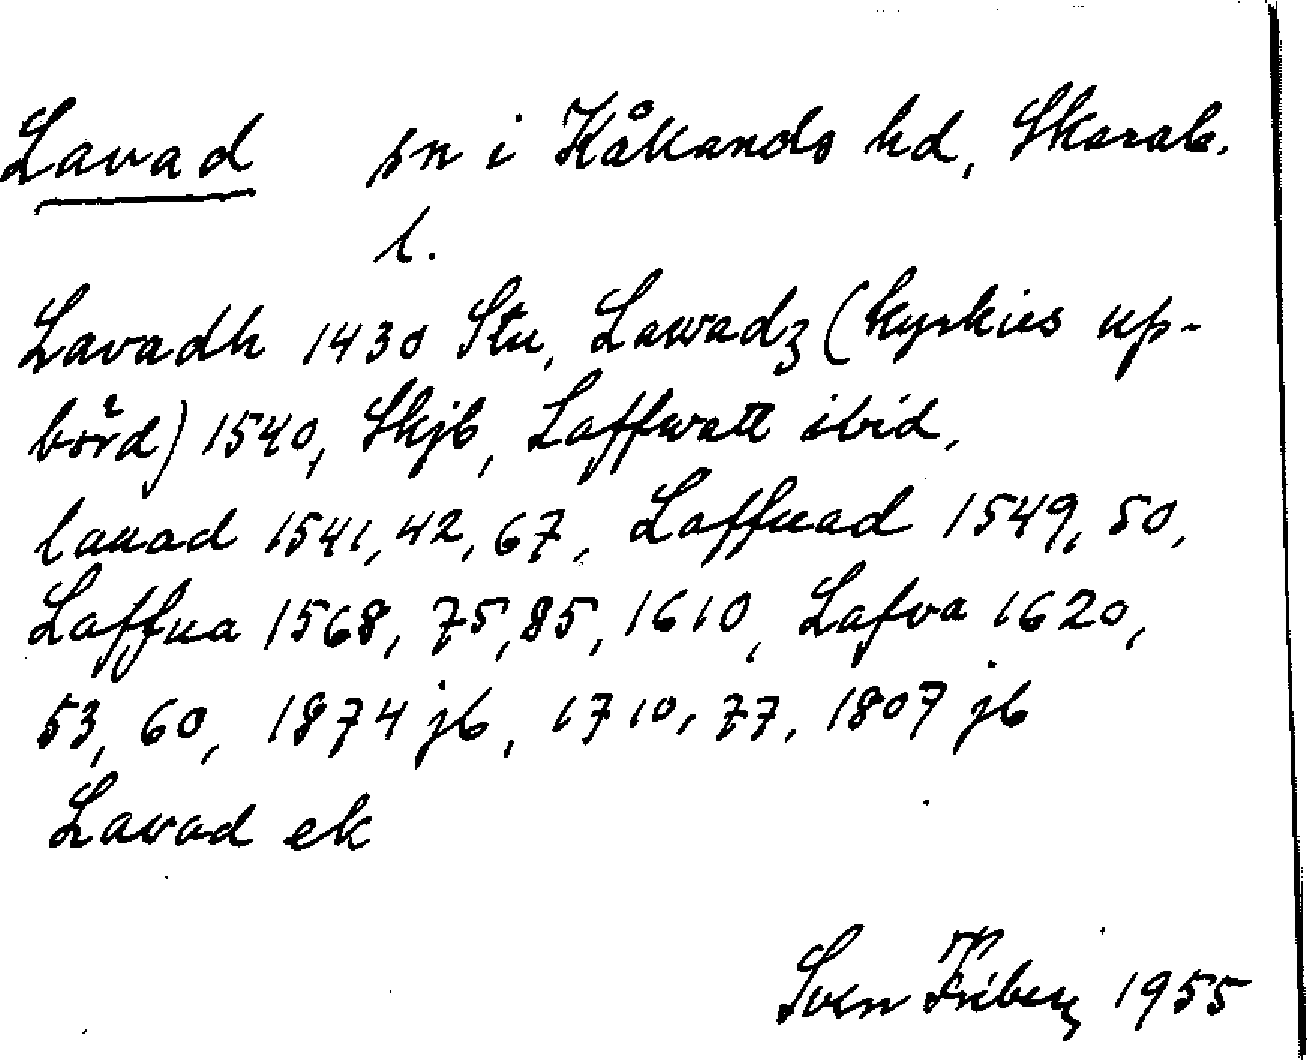 Lavad sn i Kåkands hd, Skarab.
l.
Lavadh 1430 Stu, Lawadz (kyrkies up-
börd) 1540, Skjb, Laffwatt ibid,
lauad 1541, 42, 67, Laffuad 1549, 50,
Laffua 1568, 75, 85, 1610, Lafva 1620,
53, 60, 1874 jb, 1710, 77, 1807 jb
Lavad ek
Sven Friberg 1955